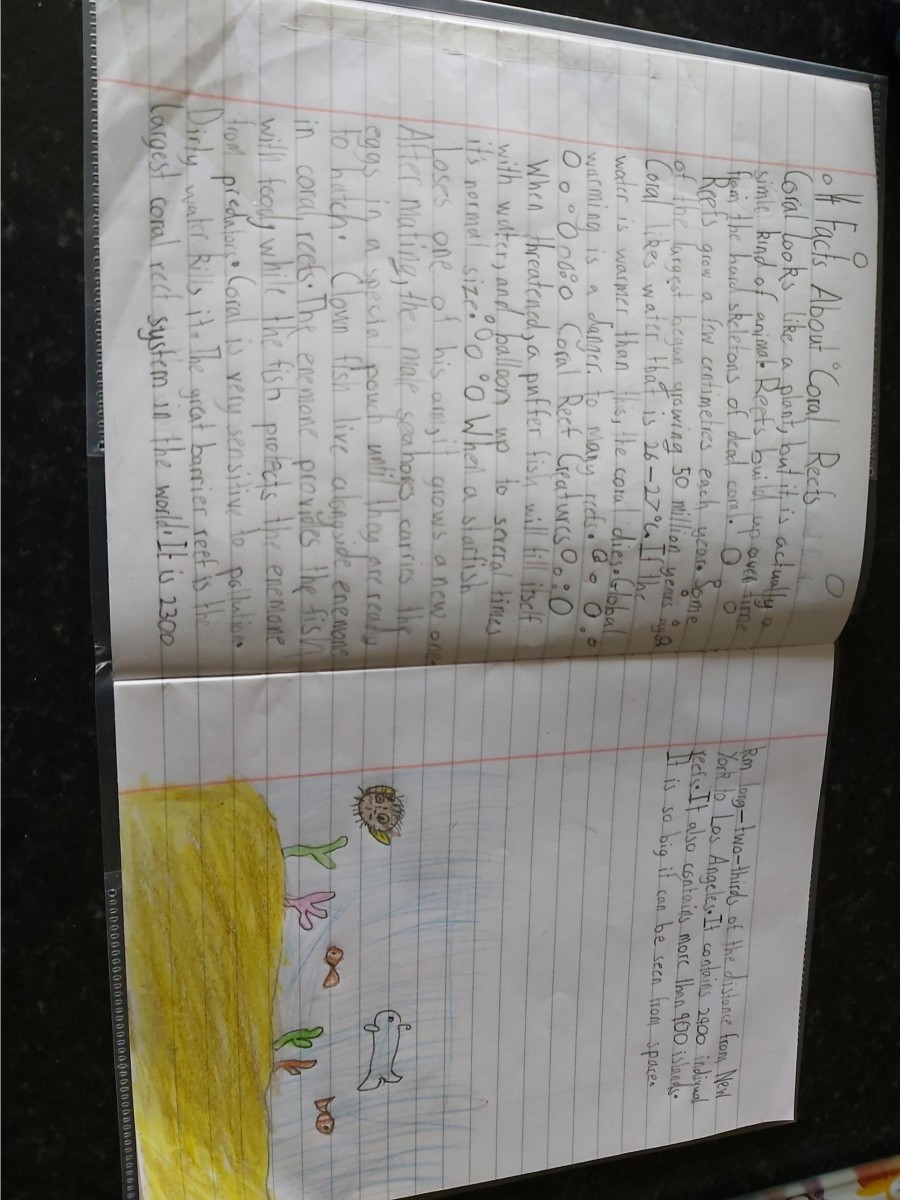 Facts About Coral Reefs
Coral looks like a plant, but it is actually a
simle kind of animal. Reefs build up over time
from the hard skeletons of dead coral.
Reefs grow a few centimetres each year. Some
of the largest began growing 50 million years ago.
Coral likes water that is 26-27°C. If the
water is warmer than this, the coral dies. Global
warming is a danger to many reefs.
Coral Reef Creatures
When threatened, a puffer fish will fill itself
with water, and balloon up to several times
it's normal size. When a starfish
Loses one of his arms, it grows a new one.
After mating, the male seahorse carries the
eggs in a special pouch until they are ready
to hatch. Clown fish live alongside enemone
in coral reefs. The enemone provides the fish
with food, while the fish protects the enemone
from predators. Coral is very sensitive to pollution.
Dirty water kills it. The great barrier reef is the
largest coral reef system in the world. It is 2300
km long-two-thirds of the distance from New
York to Los Angeles. It contains 2900 indivual
reefs. It also contains more than 900 islands.
It is so big it can be seen from space.